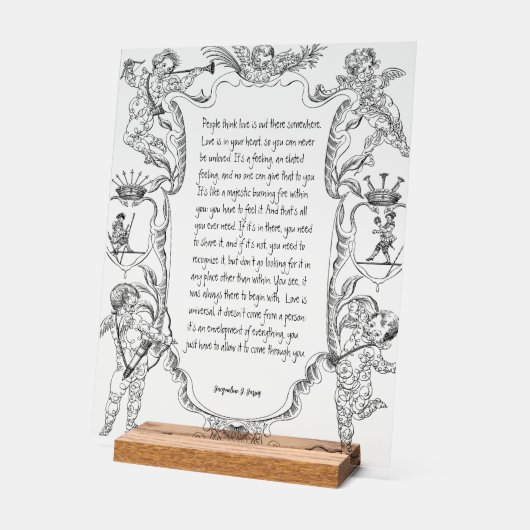 People think love is out there somewhere.
Love is in your heart, so you can never
be unloved. It's a feeling, an elated
feeling, and no one can give that to you.
It's like a majestic burning fire within
you; you have to feel it. And that's all
you ever need. If it's in there, you need
to share it, and if it's not, you need to
recognize it, but don't go looking for it in
any place other than within. You see, it
was always there to begin with. Love is
universal, it doesn't come from a person;
it's an envelopment of everything, you
just have to allow it to come through you.
Jacqueline